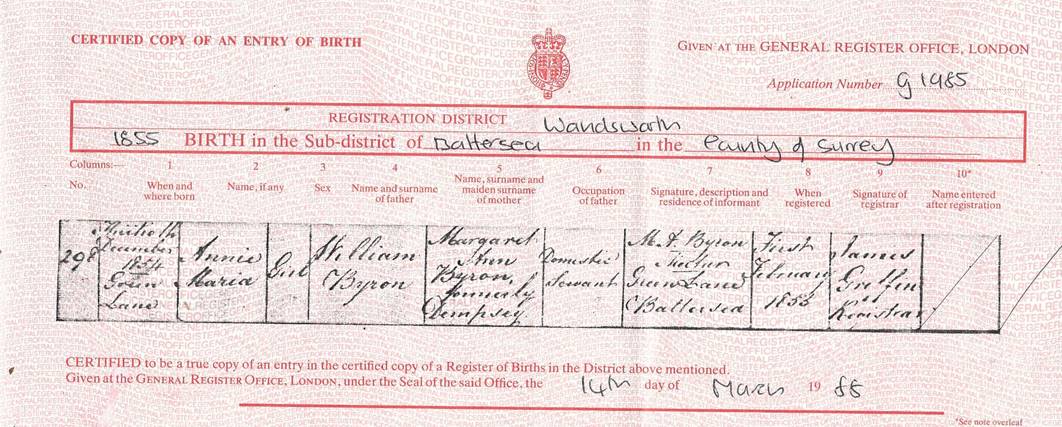 CERTIFIED COPY OF AN ENTRY OF BIRTH
GIVEN AT THE GENERAL REGISTER OFFICE, LONDON
Application Number G 1985
REGISTRATION DISTRICT Wandsworth
1855 BIRTH in the Sub-district of Battersea in the County of Surrey
Columns:— 1 2 3 4 5 6 7 8 9 10*
No. When and where born Name, if any Sex Name and surname of father Name, surname and maiden surname of mother Occupation of father Signature, description and residence of informant When registered Signature of registrar Name entered after registration
298 December 1854 Green Lane
Annie Maria
Girl
William Byron
Margaret Ann Byron, formerly Dempsey
Domestic Servant
M. A. Byron Mother Green Lane Battersea
First February 1855
James Griffin Registrar
CERTIFIED to be a true copy of an entry in the certified copy of a Register of Births in the District above mentioned.
Given at the GENERAL REGISTER OFFICE, LONDON, under the Seal of the said Office, the 14th day of March 19 88
*See note overleaf